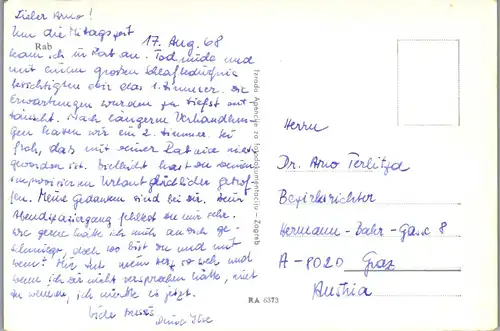 Lieber Arno!
Um die Mittagszeit
17. Aug. 68
Rab
kam ich in Rab an. Todmüde und
mit einem großen Schlafbedürfnis
besichtigten wir das 1. Zimmer. Die
Erwartungen wurden zu tiefst ent-
täuscht. Nach längeren Verhandlun-
gen haben wir ein 2. Zimmer. Sei
froh, das mit einer Rab nie
geworden ist. Vielleicht hast du
improvisierten Urlaub glücklicher getrof-
fen. Meine Gedanken sind bei dir. Dein
Abendspaziergang fehlt mir sehr.
Wie gerne hätte ich mich an dich ge-
doch wo bist du und mit
wem? Mir tut mein Herz so weh und
wenn ich dir nicht versprochen hätte, nicht
zu weinen, ich würde es jetzt.
Viele
deine Ilse
Izrada Agencije za fotodokumentaciju - Zagreb
RA 6373
Herrn
Dr. Arno Terlitza
Bezirksrichter
Hermann-Bahr-Gasse 8
A-8020 Graz
Austria